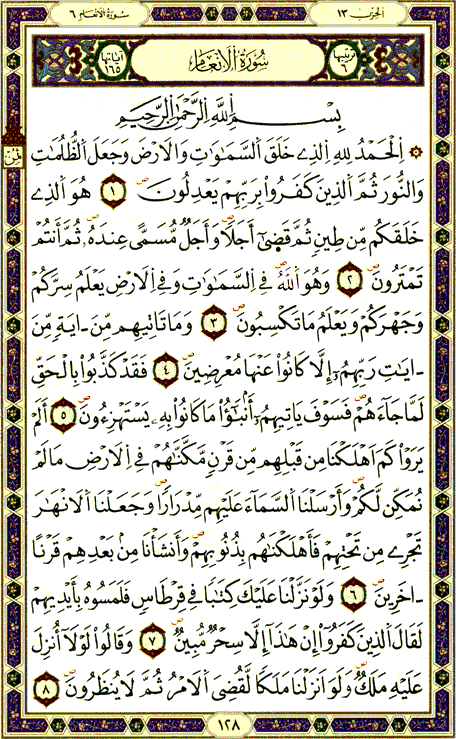 الحزب ١٣
سورة الأنعام ٦
ترتيبها ٦ سُورَةُ الْأَنْعَامِ آياتها ١٦٥
بِسْمِ اِللَّهِ اِلرَّحْمَٰنِ اِلرَّحِيمِ
ثمن
۞ اِلْحَمْدُ لِلهِ اِلذِے خَلَقَ اَلسَّمَٰوَٰتِ وَالَارْضَ وَجَعَلَ اَلظُّلُمَٰتِ
وَالنُّورَ ثُمَّ اَلذِينَ كَفَرُواْ بِرَبِّهِمْ يَعْدِلُونَۖ ١ هُوَ اَلذِے
خَلَقَكُم مِّن طِينٖ ثُمَّ قَضَىٰٓ أَجَلاٗۖ وَأَجَلٞ مُّسَمّيً عِندَهُۥۖ ثُمَّ أَنتُمْ
تَمْتَرُونَۖ ٢ وَهُوَ اَللَّهُۖ فِے اِلسَّمَٰوَٰتِ وَفِے اِلَارْضِ يَعْلَمُ سِرَّكُمْ
وَجَهْرَكُمْ وَيَعْلَمُ مَا تَكْسِبُونَۖ ٣ وَمَا تَاتِيهِم مِّنَ ـايَةٖ مِّنَ
ـايَٰتِ رَبِّهِمُۥٓ إِلَّا كَانُواْ عَنْهَا مُعْرِضِينَۖ ٤ فَقَدْ كَذَّبُواْ بِالْحَقِّ
لَمَّا جَآءَهُمْۖ فَسَوْفَ يَاتِيهِمُۥٓ أَنۢبَٰٓؤُاْ مَا كَانُواْ بِهِۦ يَسْتَهْزِءُونَۖ ٥ أَلَمْ
يَرَوْاْ كَمَ اَهْلَكْنَا مِن قَبْلِهِم مِّن قَرْنٖ مَّكَّنَّٰهُمْ فِے اِلَارْضِ مَا لَمْ
نُمَكِّن لَّكُمْۖ وَأَرْسَلْنَا اَلسَّمَآءَ عَلَيْهِم مِّدْرَاراٗۖ وَجَعَلْنَا اَلَانْهَٰرَ
تَجْرِے مِن تَحْتِهِمْ فَأَهْلَكْنَٰهُم بِذُنُوبِهِمْۖ وَأَنشَأْنَا مِنۢ بَعْدِهِمْ قَرْناً
ـاخَرِينَۖ ٦ وَلَوْ نَزَّلْنَا عَلَيْكَ كِتَٰباٗ فِے قِرْطَاسٖ فَلَمَسُوهُ بِأَيْدِيهِمْ
لَقَالَ اَلذِينَ كَفَرُوٓاْ إِنْ هَٰذَآ إِلَّا سِحْرٞ مُّبِينٞۖ ٧ وَقَالُواْ لَوْلَآ أُنزِلَ
عَلَيْهِ مَلَكٞۖ وَلَوَ اَنزَلْنَا مَلَكاٗ لَّقُضِيَ اَلَامْرُ ثُمَّ لَا يُنظَرُونَۖ ٨
١٢٨